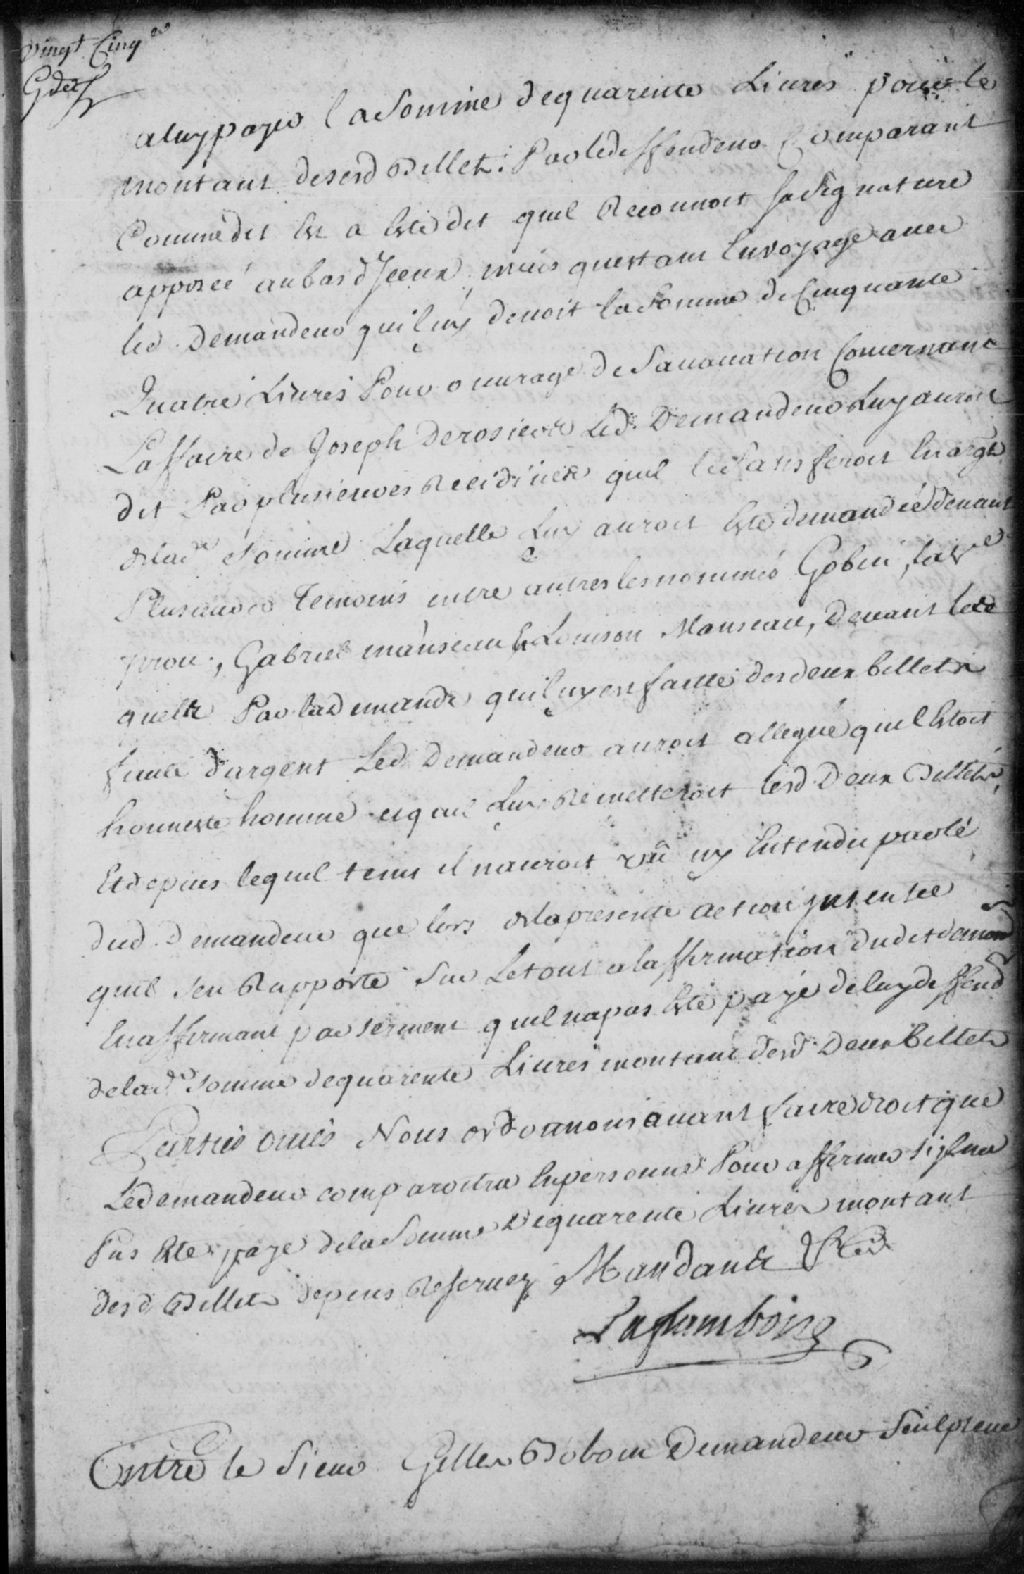 Vingt Cinq e
a luy payer la Somme de quarente Livres pour le
montant desesd Billets. Par le deffendeur Comparant
Comme dit Est a Esté dit quil Reconnoit sa Signature
apposeé au bas d'Iceux mais questant En voyage avec
led. Demandeur quil luy devoit la Somme de Cinquante
Quatre Livres Pour ouvrage de Sa vocation Concernant
Laffaire de Joseph Derosiers Led. Demandeur Luy auroit
dit Par plusieures Recidives quil le Satisferoit En arge
de lad.e Somme Laquelle Luy auroit Esté demandeé devant
Plusieurs Temoins entre autres les nommés Gobin, la Ve
prou, Gabriel manseau & Louison Manseau, devant les
quelle Par la demande quil luy en faite des deux billets
faute d'argent Led. Demandeur auroit allegué quil Estoit
honneste homme et quil Luy Remetteroit lesd Deux Billets,
Et depuis lequel tems il nauroit vû ny Entendu parlé
dud. Demandeur que lors de la presente action Intenteé
quil sen Rapporte Sur Le tout a laffirmation dudit deman
En affirmant par serment quil na pas Esté payé de luy deffend
de lad.e Somme de quarente Livres montant desd. Deux Billets
Parties ouies Nous ordonnons avant faire droit que
Le demandeur comparoitra En personne Pour affirmer sil na
Pas Esté payé de la Somme De quarente Livres montant
desd Billets depens Reservez Mandant &
Laframboise
Entre le Sieur Gilles Bolvin Demandeur Sculpteur